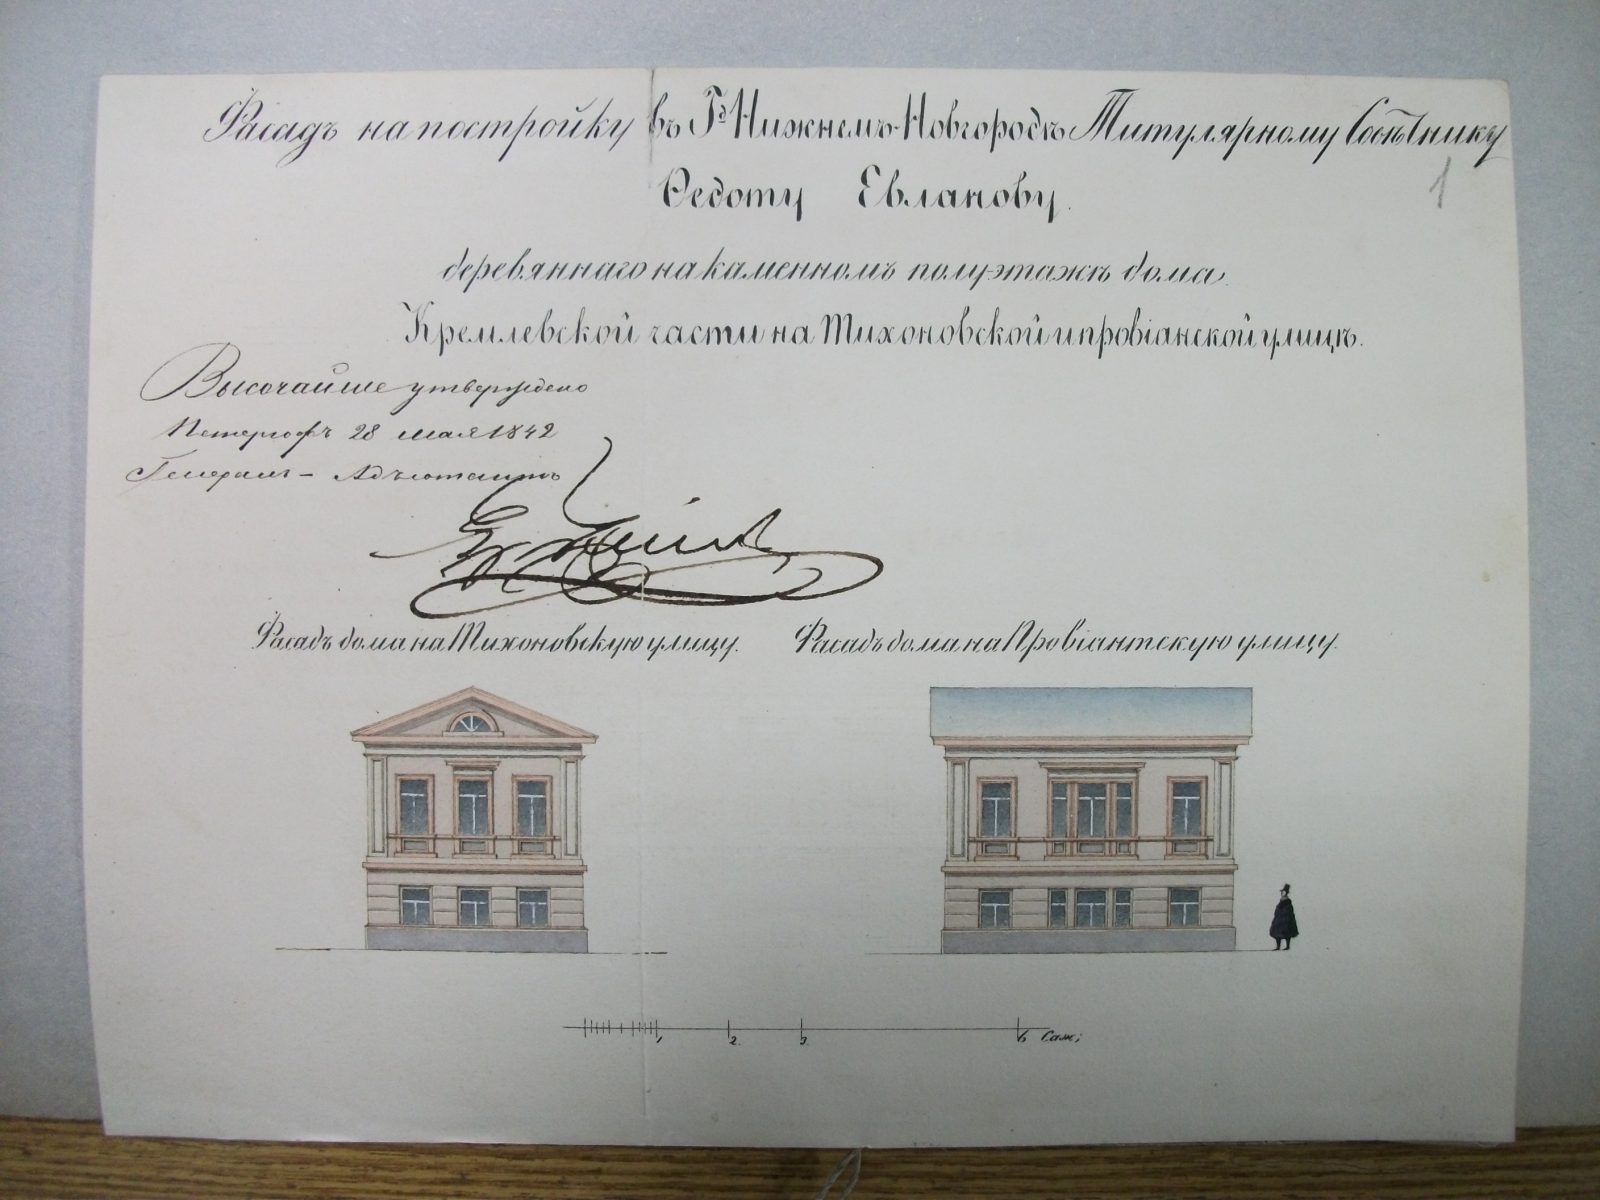 Фасадъ на постройку въ Гд Нижнемъ-Новгородѣ Титулярному Совѣтнику
1
Ѳедоту Евланову.
деревяннаго на каменномъ полуэтажѣ дома
Кремлевской части на Тихоновской и провіанской улицѣ.
Высочайше утверждено
Петергофъ 28 мая 1842
Генералъ-Адъютантъ
Фасадъ дома на Тихоновскую улицу. Фасадъ дома на Провіантскую улицу.
1 2. 3. 6 Саж: